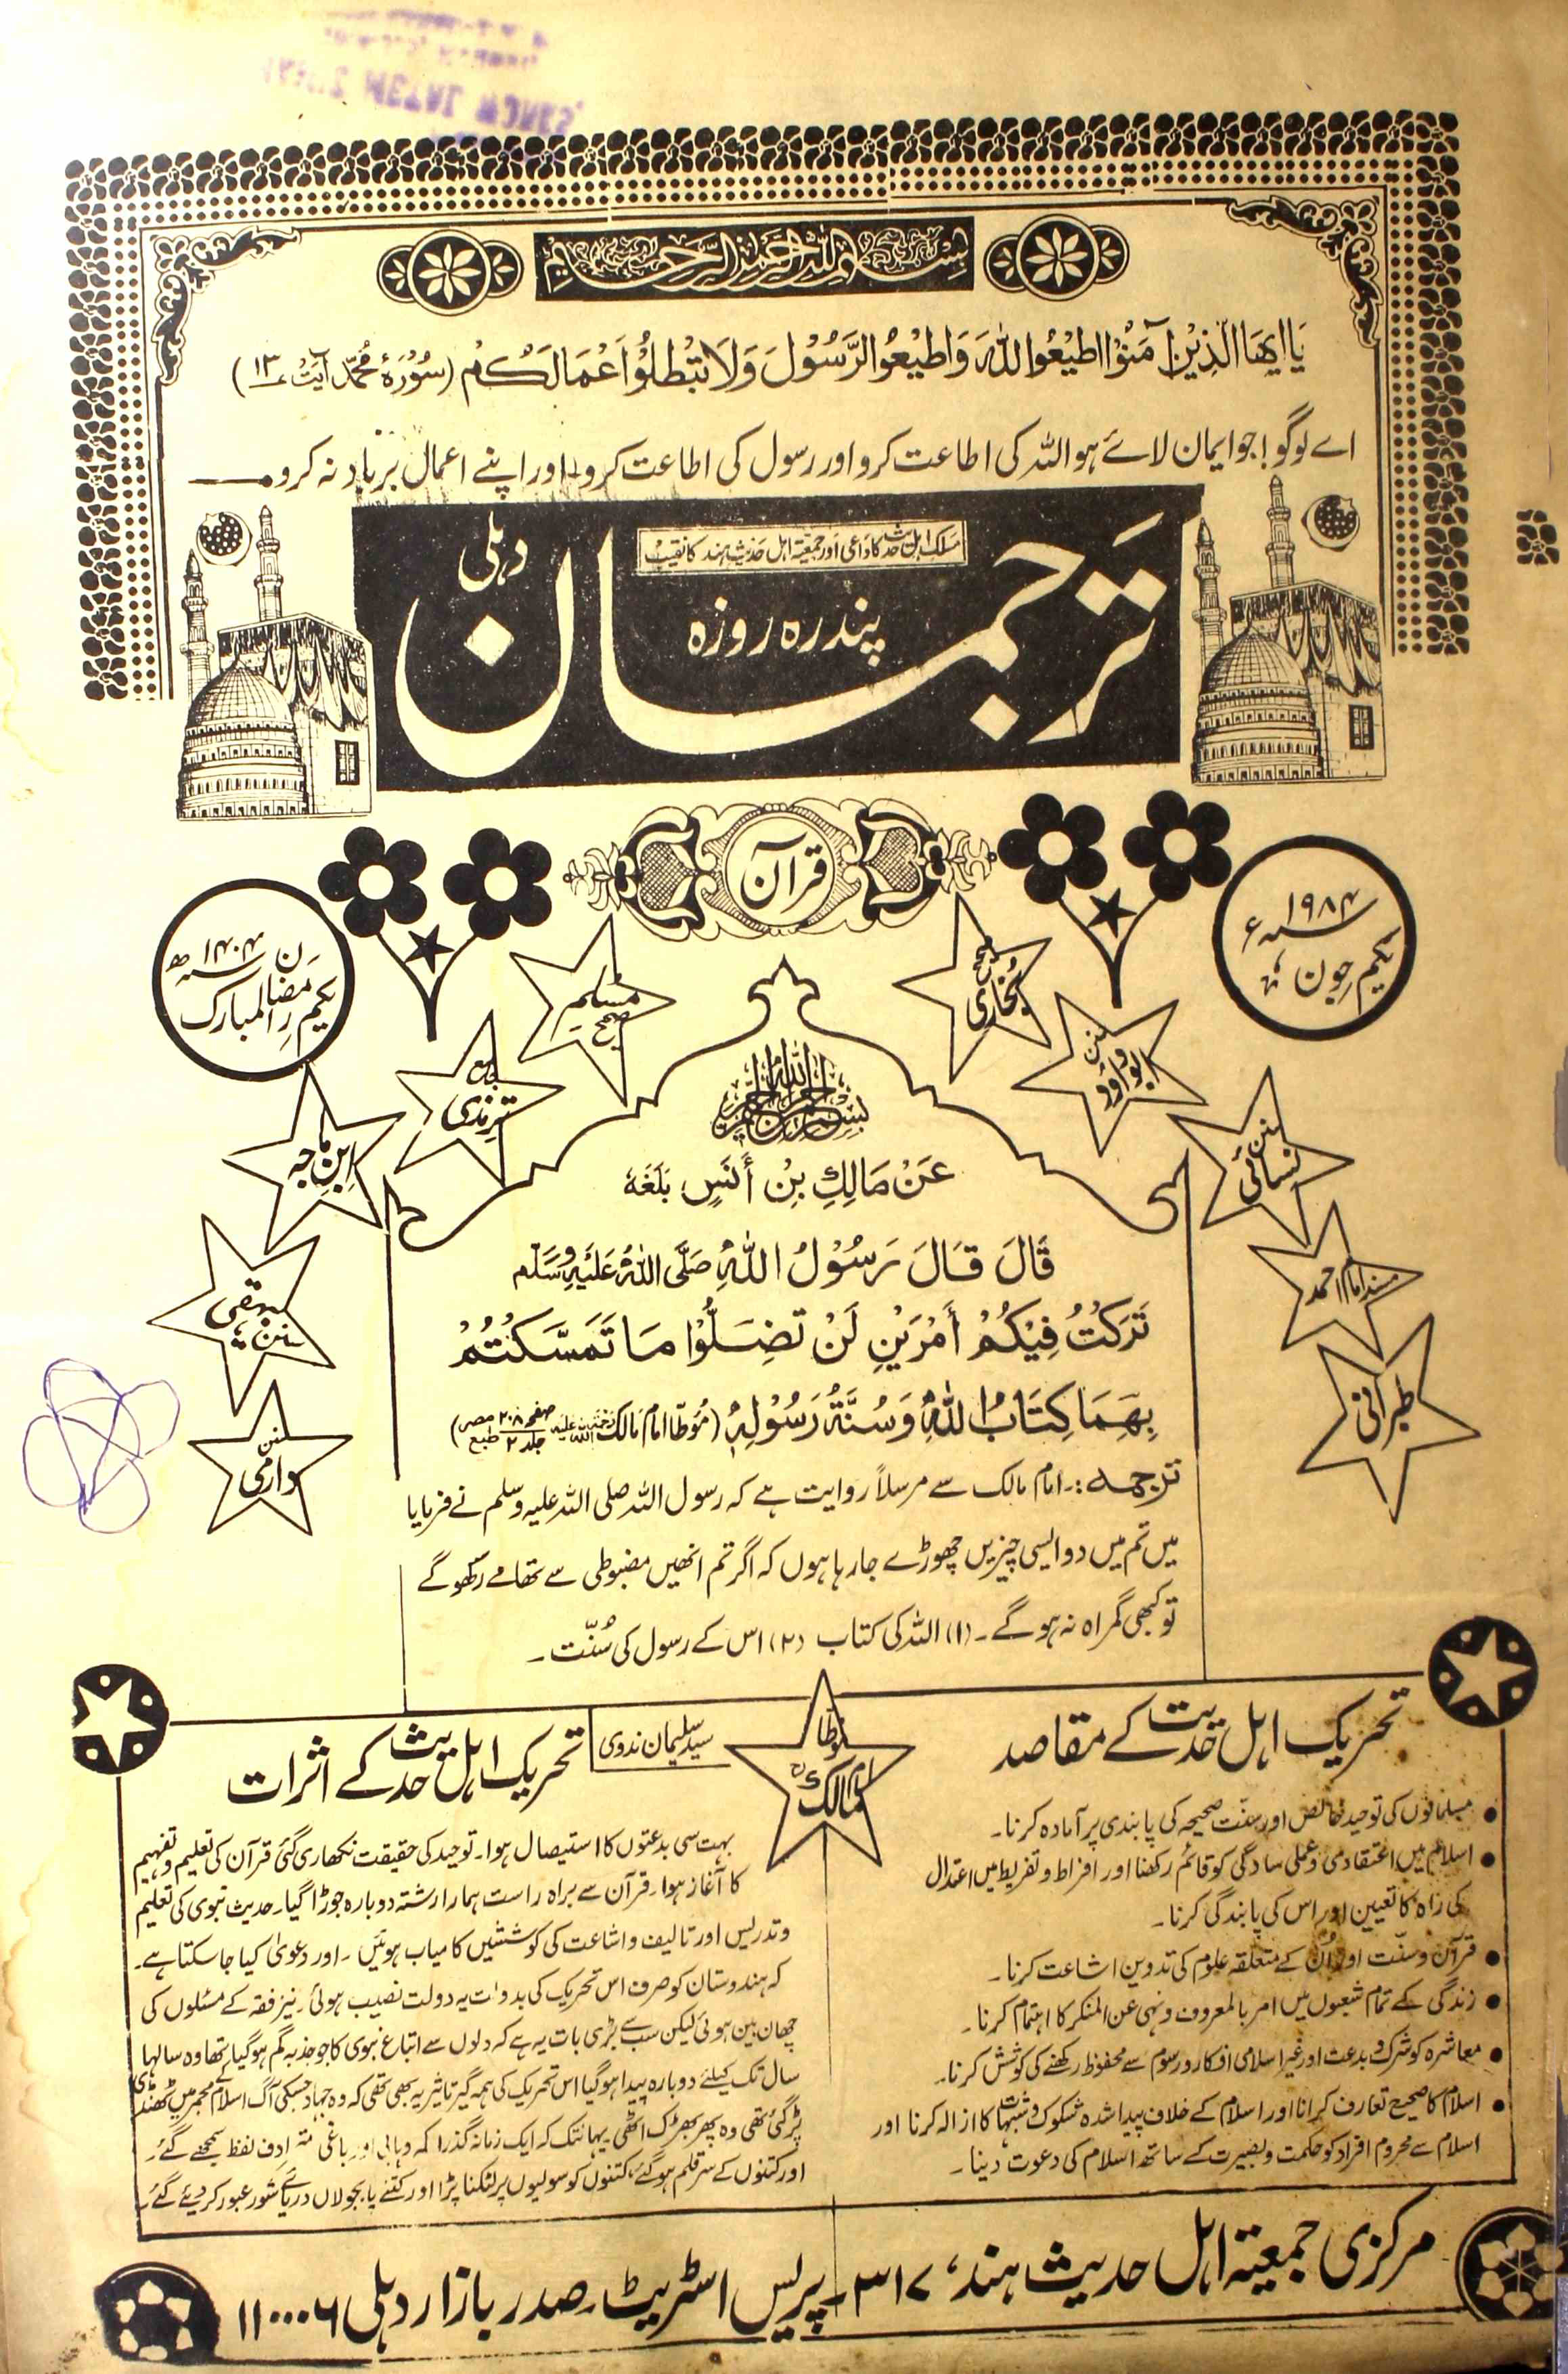 بسم الله الرحمن الرحيم
يَا اَيُّهَا الَّذِيْنَ آمَنُوْا اطِيْعُوا اللّٰهَ وَاطِيْعُوا الرَّسُوْلَ وَلَا تُبْطِلُوْا اَعْمَالَكُمْ (سُوْرَۂ مُحَمَّد آیَت ۱۳)
اے لوگو! جو ایمان لائے ہو اللہ کی اطاعت کرو اور رسول کی اطاعت کرو اور اپنے اعمال برباد نہ کرو
مسلک اہل حدیث کا داعی اور جمعیۃ اہل حدیث ہند کا نقیب
دہلی
ترجمان
پندرہ روزہ
قرآن
یکم جون
۱۹۸۴ء
یکم رمضان المبارک
۱۴۰۴ھ
صحیح بخاری
صحیح مسلم
سنن ابوداود
جامع ترمذی
سنن نسائی
ابن ماجہ
مسند امام احمد
سنن بیہقی
طبرانی
سنن دارمی
بسم الله الرحمن الرحيم
عَنْ مَالِكِ بِنْ أَنَسٍ بَلَغَهُ
قَالَ قَالَ رَسُوْلُ اللّٰهِ صَلَّى اللّٰهُ عَلَيْهِ وَسَلَّم
تَرَكْتُ فِيْكُمْ أَمْرَيْنِ لَنْ تَضِلُّوْا مَا تَمَسَّكْتُمْ
بِهِمَا كِتَابُ اللّٰهِ وَسُنَّةُ رَسُوْلِهِ (مُوطّا امام مالک رحمۃ اللہ علیہ صفحہ ۲۰۸ جلد ۲ طبع مصر)
ترجمہ:۔ امام مالک سے مرسلاً روایت ہے کہ رسول اللہ صلی اللہ علیہ وسلم نے فرمایا
میں تم میں دو ایسی چیزیں چھوڑے جارہا ہوں کہ اگر تم انھیں مضبوطی سے تھامے رکھو گے
تو کبھی گمراہ نہ ہو گے۔ (۱) اللہ کی کتاب (۲) اس کے رسول کی سُنّت۔
موطا امام مالک
تحریک اہل حدیث کے مقاصد
• مسلمانوں کی توحید خالص اور سنّت صحیحہ کی پابندی پر آمادہ کرنا۔
• اسلام میں اعتقادی و عملی سادگی کو قائم رکھنا اور افراط و تفریط میں اعتدال
کی راہ کا تعیین اور اس کی پابندگی کرنا۔
• قرآن و سنّت اور اُن کے متعلقہ علوم کی تدوین اشاعت کرنا۔
• زندگی کے تمام شعبوں میں امر بالمعروف و نہی عن المنکر کا اہتمام کرنا۔
• معاشرہ کو شرک و بدعت اور غیر اسلامی افکار و رسوم سے محفوظ رکھنے کی کوشش کرنا۔
• اسلام کا صحیح تعارف کرانا اور اسلام کے خلاف پیدا شدہ شکوک و شبہات کا ازالہ کرنا اور
اسلام سے محروم افراد کو حکمت و بصیرت کے ساتھ اسلام کی دعوت دینا۔
سید سلیمان ندوی
تحریک اہل حدیث کے اثرات
بہت سی بدعتوں کا استیصال ہوا۔ توحید کی حقیقت نکھاری گئی قرآن کی تعلیم و تفہیم
کا آغاز ہوا۔ قرآن سے براہ راست ہمارا رشتہ دوبارہ جوڑا گیا۔ حدیث نبوی کی تعلیم
و تدریس اور تالیف و اشاعت کی کوششیں کامیاب ہوئیں۔ اور دعویٰ کیا جاسکتا ہے۔
کہ ہندوستان کو صرف اس تحریک کی بدولت یہ دولت نصیب ہوئی۔ نیز فقہ کے مسئلوں کی
چھان بین ہوئی لیکن سب سے بڑی بات یہ ہے کہ دلوں سے اتباع نبوی کا جو جذبہ گم ہوگیا تھا وہ سالہا
سال تک کیلئے دوبارہ پیدا ہوگیا اس تحریک کی ہمہ گیر تاثیر یہ بھی تھی کہ وہ جہاد جسکی آگ اسلام کے مجمر میں ٹھنڈی
پڑ گئی تھی وہ پھر بھڑک اٹھی یہانتک کہ ایک زمانہ گذرا کہ وہابی اور باغی مترادف لفظ سمجھے گئے۔
اور کتنوں کے سر قلم ہوگئے، کتنوں کو سولیوں پر لٹکنا پڑا اور کتنے پابجولاں دریائے شور عبور کر دیئے گئے۔
مرکزی جمعیۃ اہل حدیث ہند، ۳۱۷۔ پریس اسٹریٹ۔ صدر بازار دہلی ۱۱۰۰۰۶